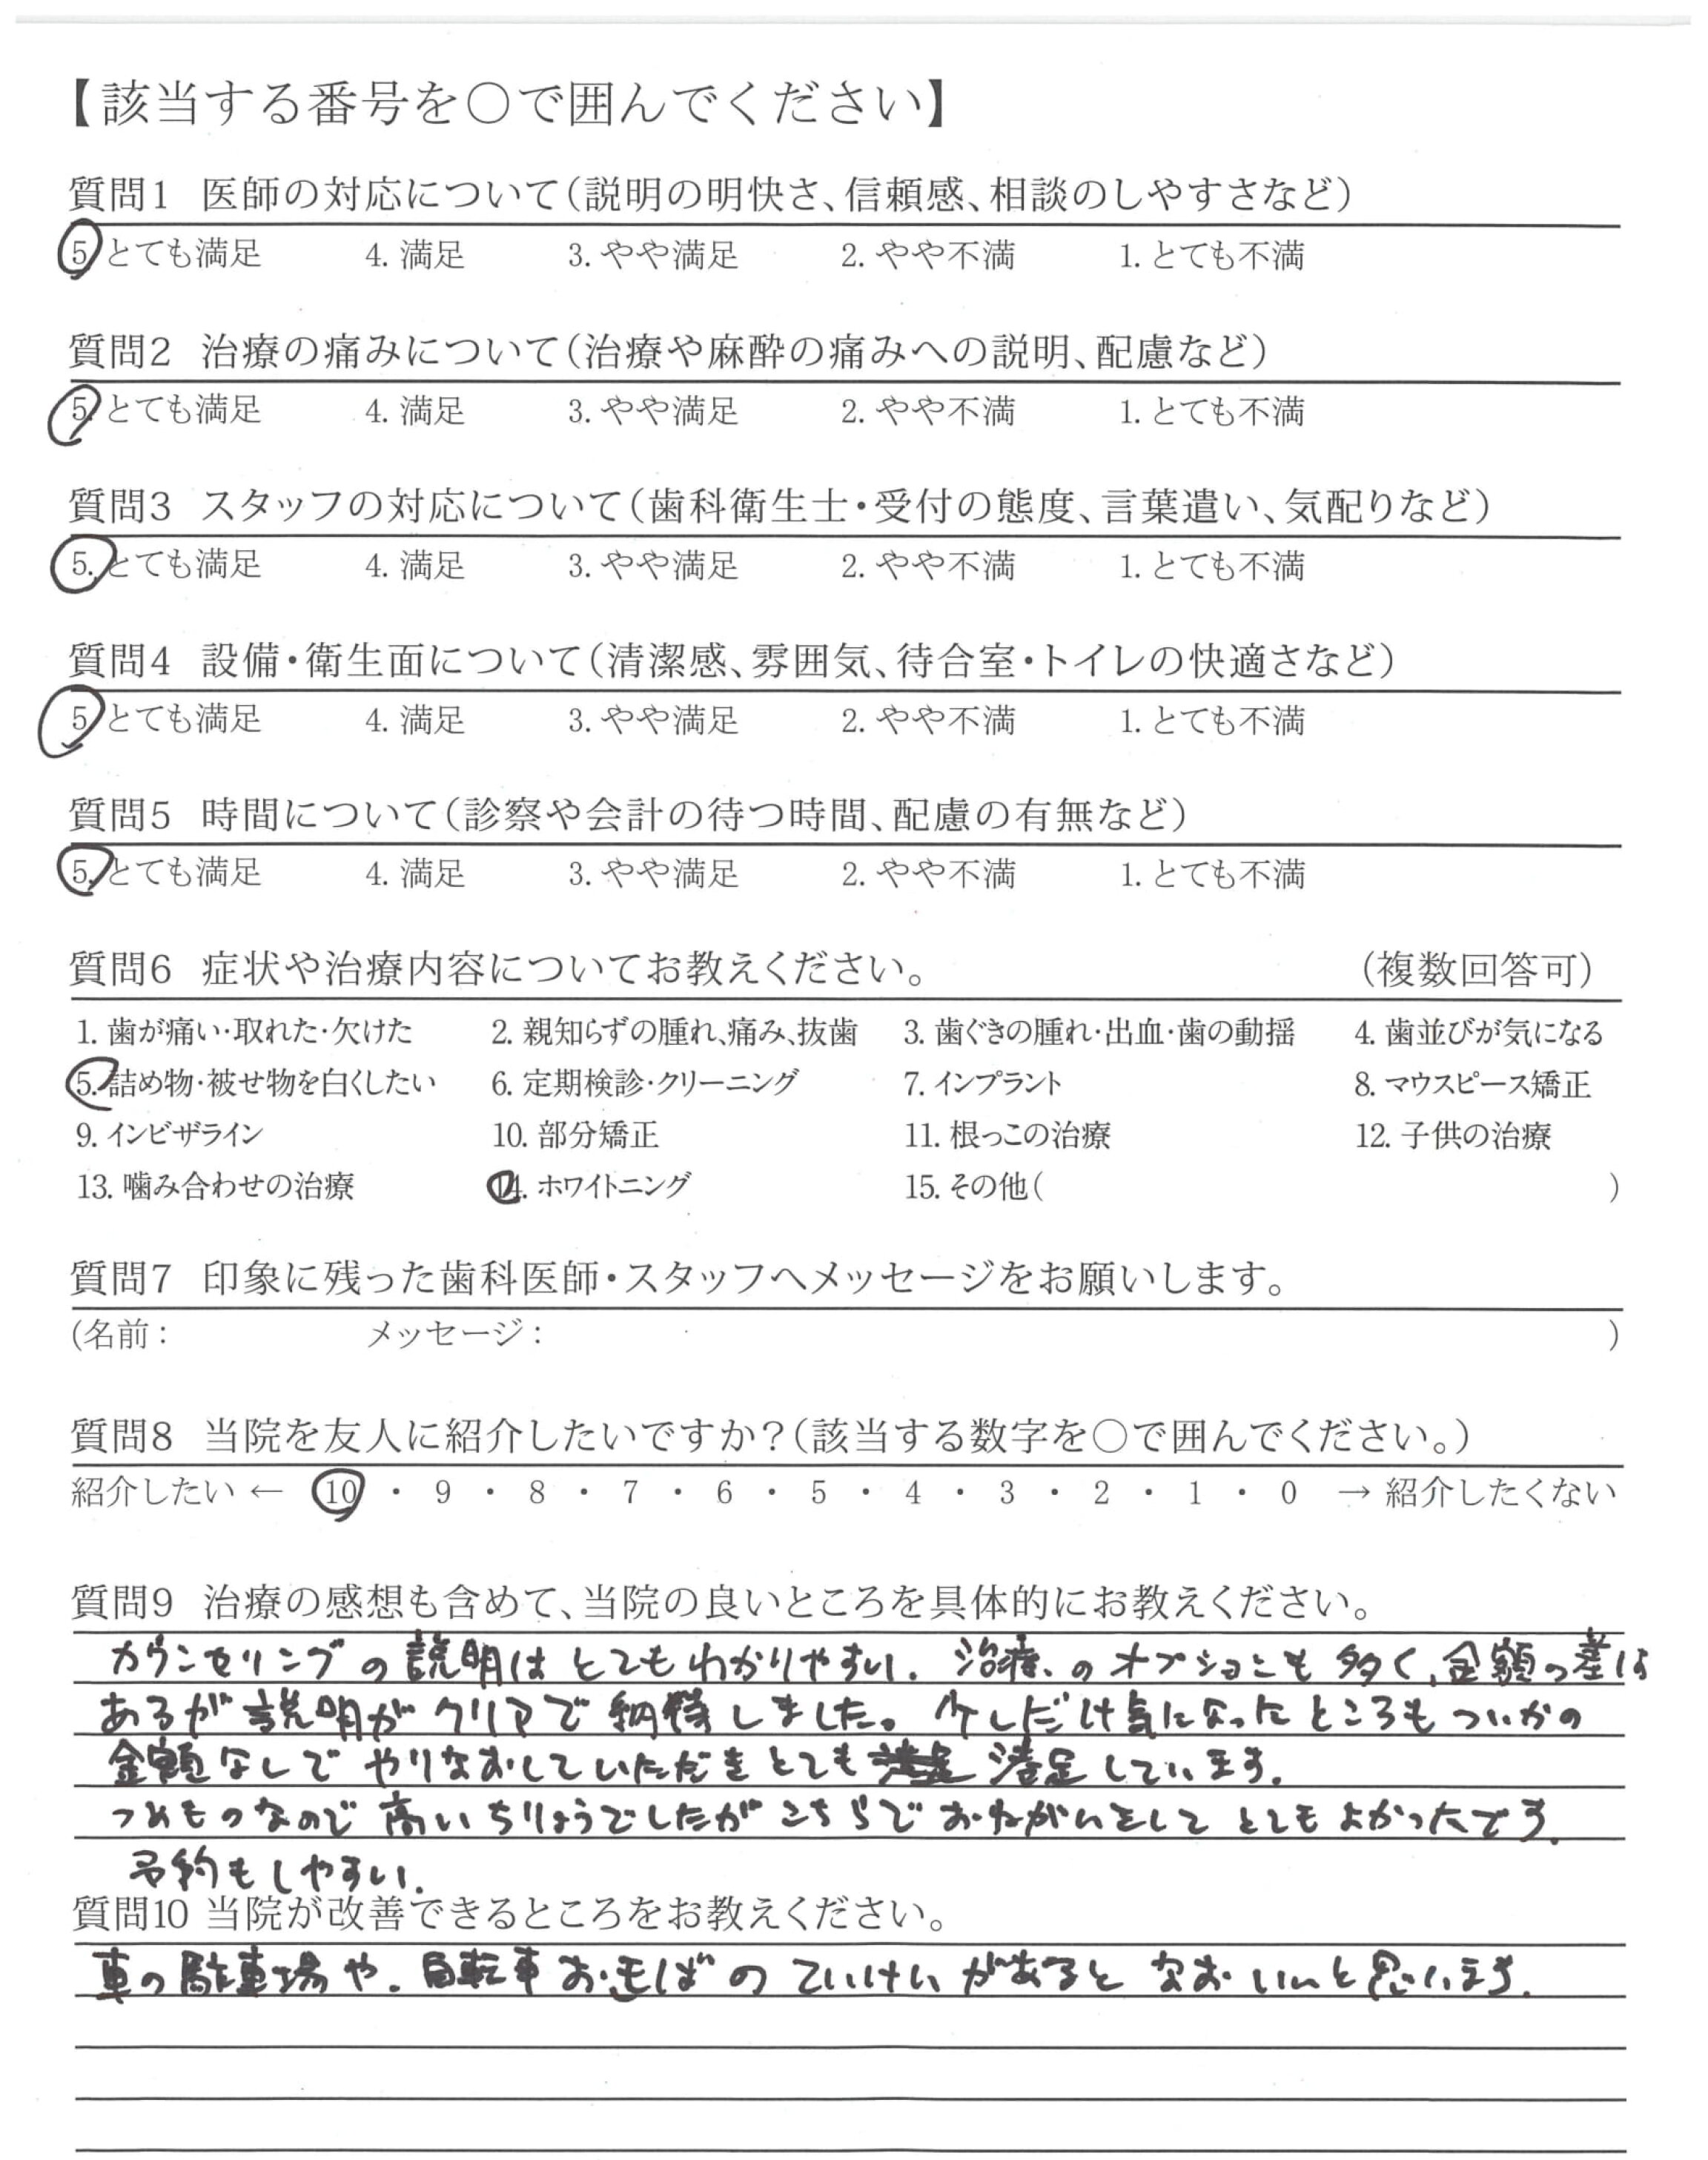 【該当する番号を○で囲んでください】
質問1 医師の対応について(説明の明快さ、信頼感、相談のしやすさなど)
5 とても満足 4. 満足 3. やや満足 2. やや不満 1. とても不満
質問2 治療の痛みについて(治療や麻酔の痛みへの説明、配慮など)
5. とても満足 4. 満足 3. やや満足 2. やや不満 1. とても不満
質問3 スタッフの対応について(歯科衛生士・受付の態度、言葉遣い、気配りなど)
5. とても満足 4. 満足 3. やや満足 2. やや不満 1. とても不満
質問4 設備・衛生面について(清潔感、雰囲気、待合室・トイレの快適さなど)
5 とても満足 4. 満足 3. やや満足 2. やや不満 1. とても不満
質問5 時間について(診察や会計の待つ時間、配慮の有無など)
5. とても満足 4. 満足 3. やや満足 2. やや不満 1. とても不満
質問6 症状や治療内容についてお教えください。 (複数回答可)
1. 歯が痛い・取れた・欠けた 2. 親知らずの腫れ、痛み、抜歯 3. 歯ぐきの腫れ・出血・歯の動揺 4. 歯並びが気になる
5. 詰め物・被せ物を白くしたい 6. 定期検診・クリーニング 7. インプラント 8. マウスピース矯正
9. インビザライン 10. 部分矯正 11. 根っこの治療 12. 子供の治療
13. 噛み合わせの治療 14. ホワイトニング 15. その他( )
質問7 印象に残った歯科医師・スタッフへメッセージをお願いします。
(名前: メッセージ: )
質問8 当院を友人に紹介したいですか?(該当する数字を○で囲んでください。)
紹介したい ← 10 ・ 9 ・ 8 ・ 7 ・ 6 ・ 5 ・ 4 ・ 3 ・ 2 ・ 1 ・ 0 → 紹介したくない
質問9 治療の感想も含めて、当院の良いところを具体的にお教えください。
カウンセリングの説明はとてもわかりやすい. 治療、のオプションも多く、金額の差は
あるが説明がクリアで納得しました。少しだけ気になったところもついかの
金額なしでやりなおしていただきとても 満足しています.
つめものなので高いちりょうでしたがこちらでおねがいをしてとてもよかったです.
予約もしやすい.
質問10 当院が改善できるところをお教えください。
車の駐車場や. 自転車おきばのていけいがあるとなおいいと思います.